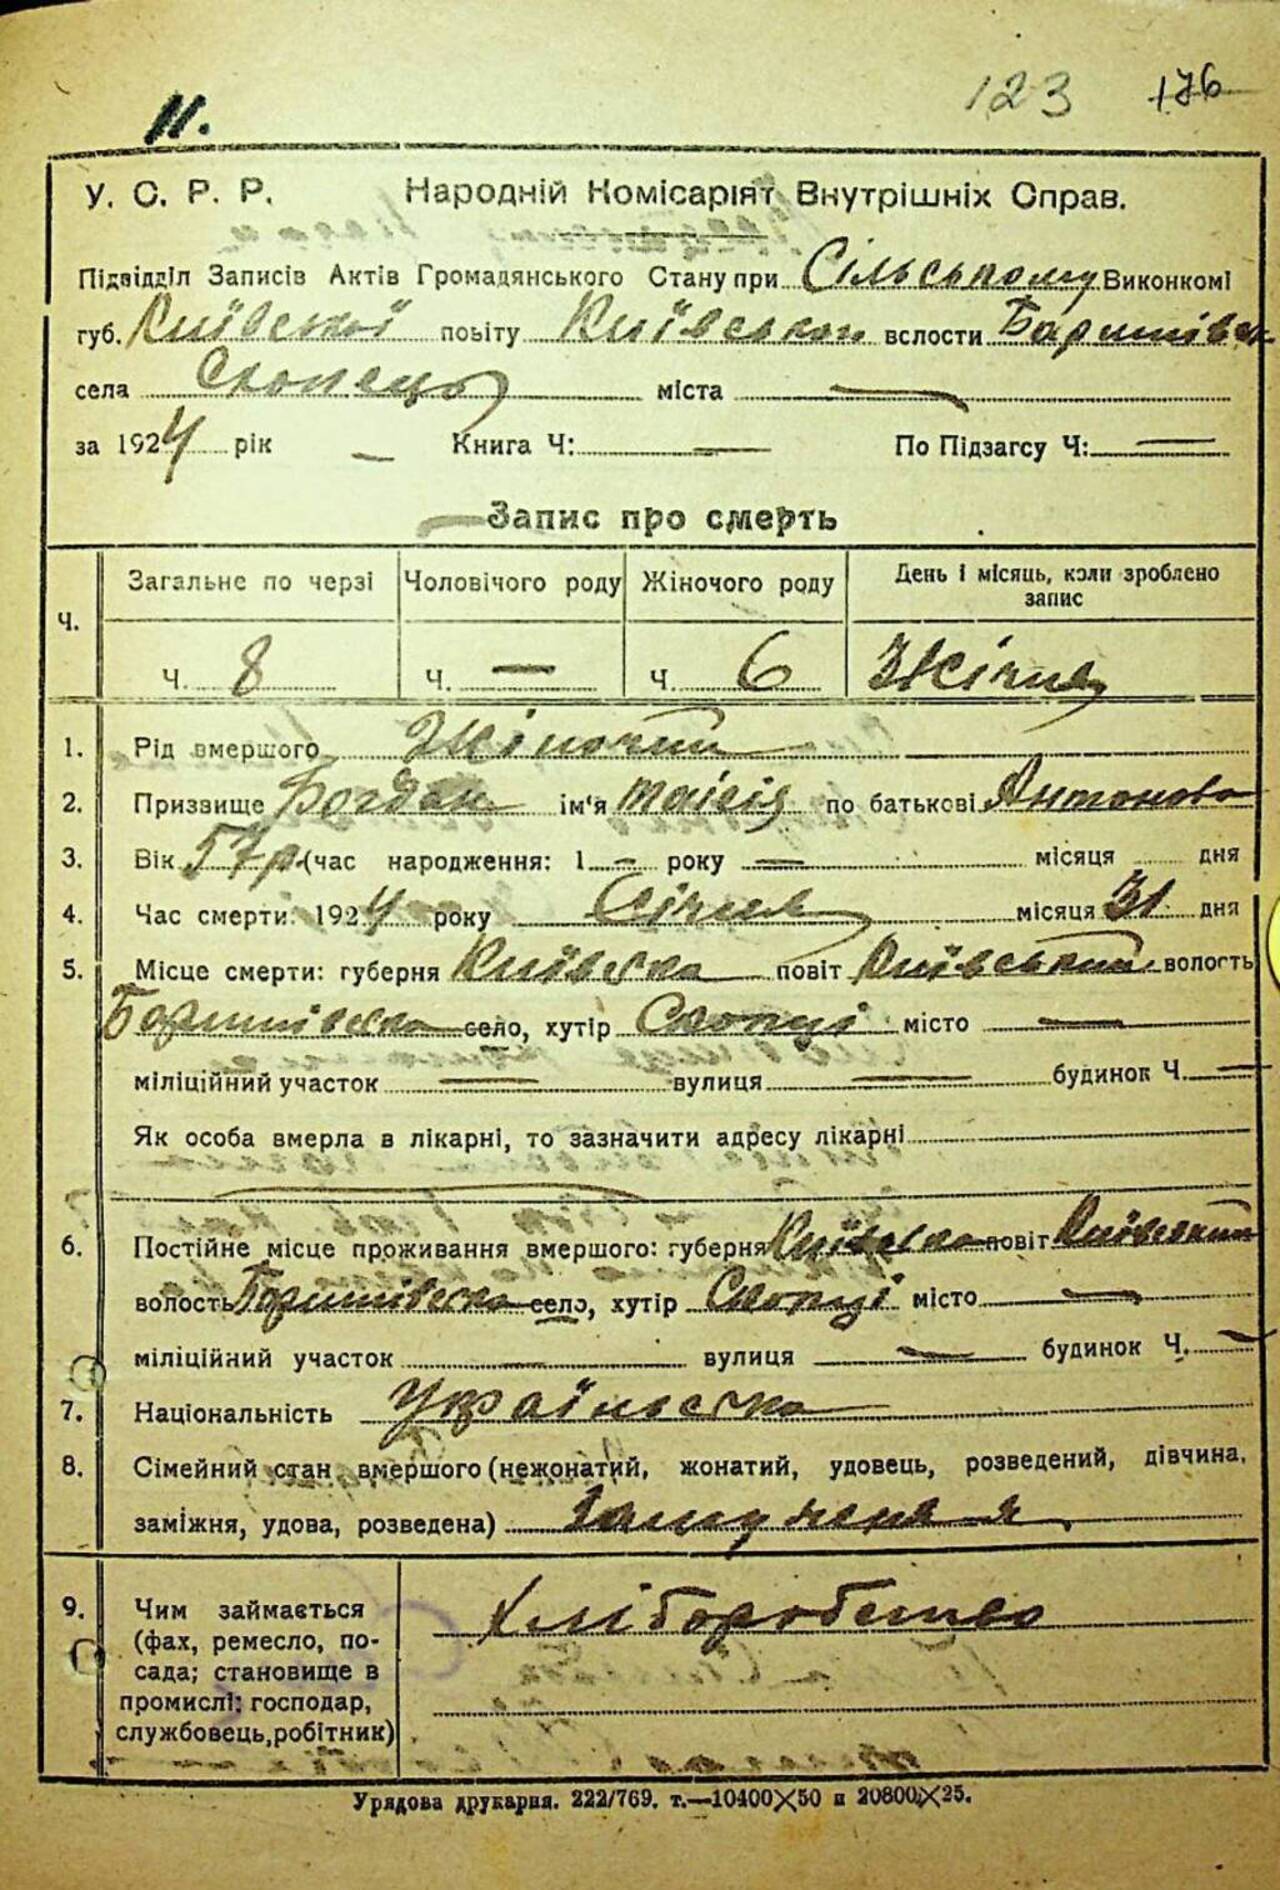 11.
123 176
У. С. Р. Р. Народній Комісаріят Внутрішніх Справ.
Підвідділ Записів Актів Громадянського Стану при Сільському Виконкомі
губ. Київської повіту Київської вслости Баришівськ
села Скопець міста —
за 1924 рік — Книга Ч: — По Підзагсу Ч: —
Запис про смерть
Ч. Загальне по черзі Чоловічого роду Жіночого роду День і місяць, коли зроблено запис
Ч. 8 Ч. — Ч. 6 31 Січня
1. Рід вмершого Жіночий
2. Призвище Богдан ім'я Таісія по батькові Антонова
3. Вік 57 р. (час народження: 1 — року — місяця дня
4. Час смерти: 1924 року Січня місяця 31 дня
5. Місце смерти: губерня Київська повіт Київський волость
Баришівська село, хутір Скопці місто —
міліційний участок — вулиця — будинок Ч. —
Як особа вмерла в лікарні, то зазначити адресу лікарні
6. Постійне місце проживання вмершого: губерня Київська повіт Київський
волость Баришівська село, хутір Скопці місто —
міліційний участок — вулиця — будинок Ч. —
7. Національність Українська
8. Сімейний стан вмершого (нежонатий, жонатий, удовець, розведений, дівчина,
заміжня, удова, розведена) Замужняя
9. Чим займається Хліборобство
(фах, ремесло, по-
сада; становище в
промислі: господар,
службовець, робітник)
Урядова друкарня. 222/769. т.—10400×50 и 20800×25.